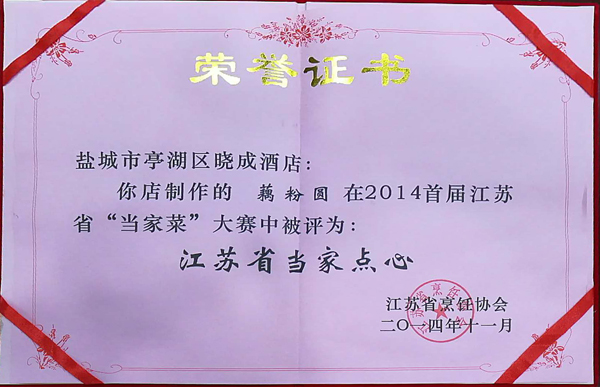 荣誉证书
盐城市亭湖区晓成酒店：
你店制作的 藕粉圆 在2014首届江苏
省“当家菜”大赛中被评为：
江苏省当家点心
江苏省烹饪协会
二〇一四年十一月
江苏省烹饪协会